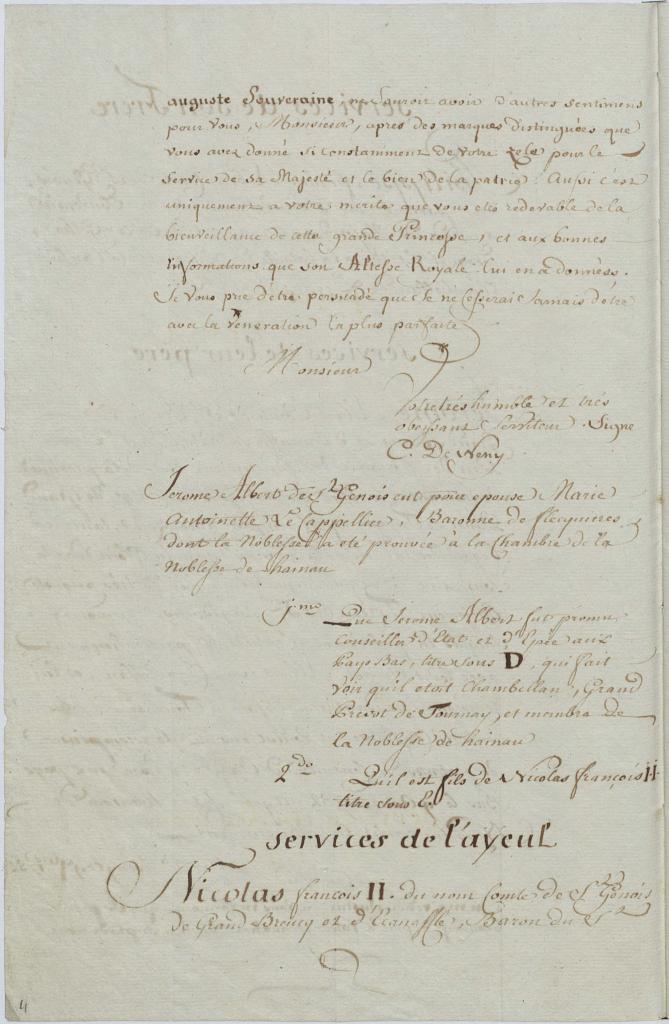 auguste Souveraine, ne sauroit avoir d'autres sentimens
pour vous, Monsieur, apres des marques distinguées que
vous avez donné si constamment de votre zele pour le
service de sa Majesté et le bien de la patrie. Aussi c'est
uniquement a votre merite que vous etes redevable de la
bienveillance de cette grande Princesse, et aux bonnes
informations que son Altesse Royale lui en a données.
Je vous prie d'être persuadé que je ne cesserai jamais d'etre
avec la veneration la plus parfaite
Monsieur
Votre très humble et très
obeyssant Serviteur. Signe
C. De Neny
Jerome Albert de St Genois eut pour epouse Marie
Antoinette Le Cappellier, Baronne de flecquieres,
dont la Noblesse a eté prouvée à la Chambre de la
Noblesse de hainau
1mo Que Jerome Albert fut promu
Conseiller d'Etat et d'Epée aux
Pays Bas, titre sous D, qui fait
voir qu'il etoit Chambellan, Grand
Prevot de Tournay, et membre de
la Noblesse de hainau
2do Qu'il est fils de Nicolas françois II
titre sous E.
services de l'ayeul
Nicolas françois II. du nom Comte de St Genois
de Grand Breucq et d'Escanaffle, Baron du St
4